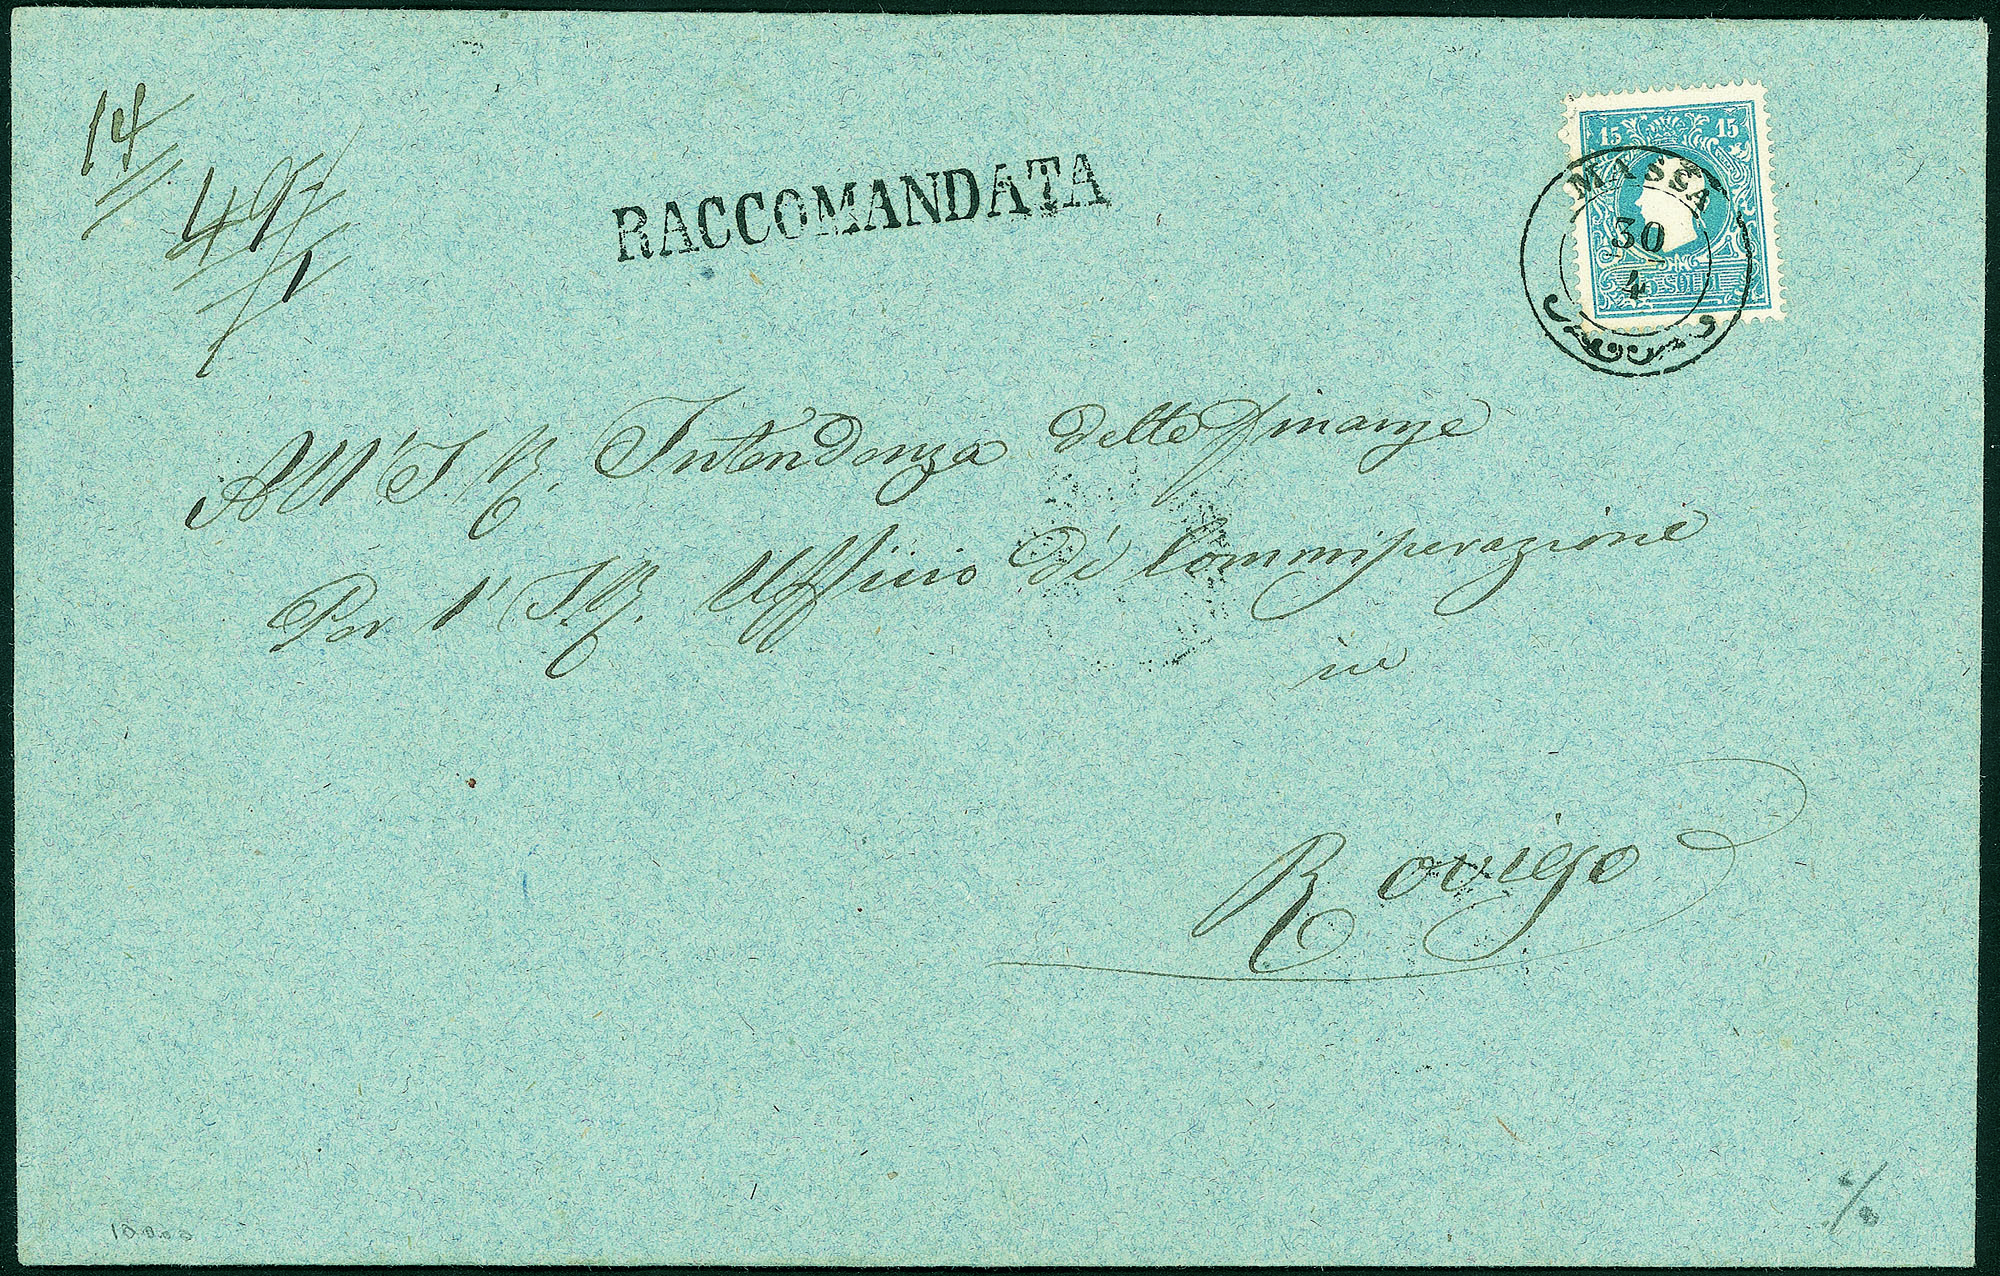 14
49
1
RACCOMANDATA
15 15
MASSA
30
4
15 SOLDI
All' I. R. Intendenza delle Finanze
Per l' I. R. Ufficio di Commisurazione
in
Rovigo